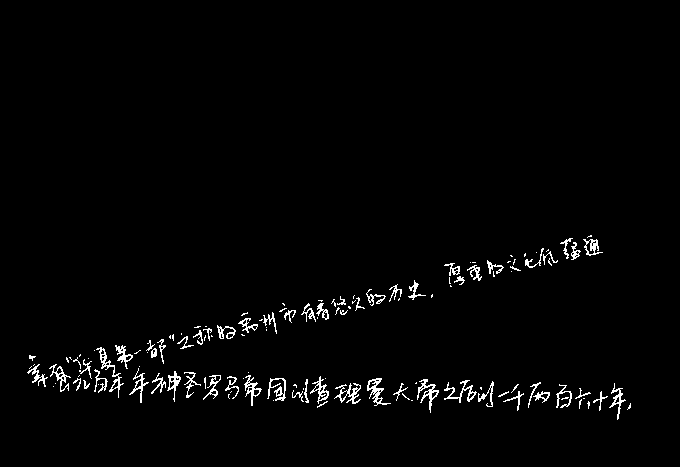 素有“华夏第一都”之称的禹州市有着悠久的历史，厚重的文化底蕴通
元百年年神圣罗马帝国以查理曼大帝之后的一千两百六十年，